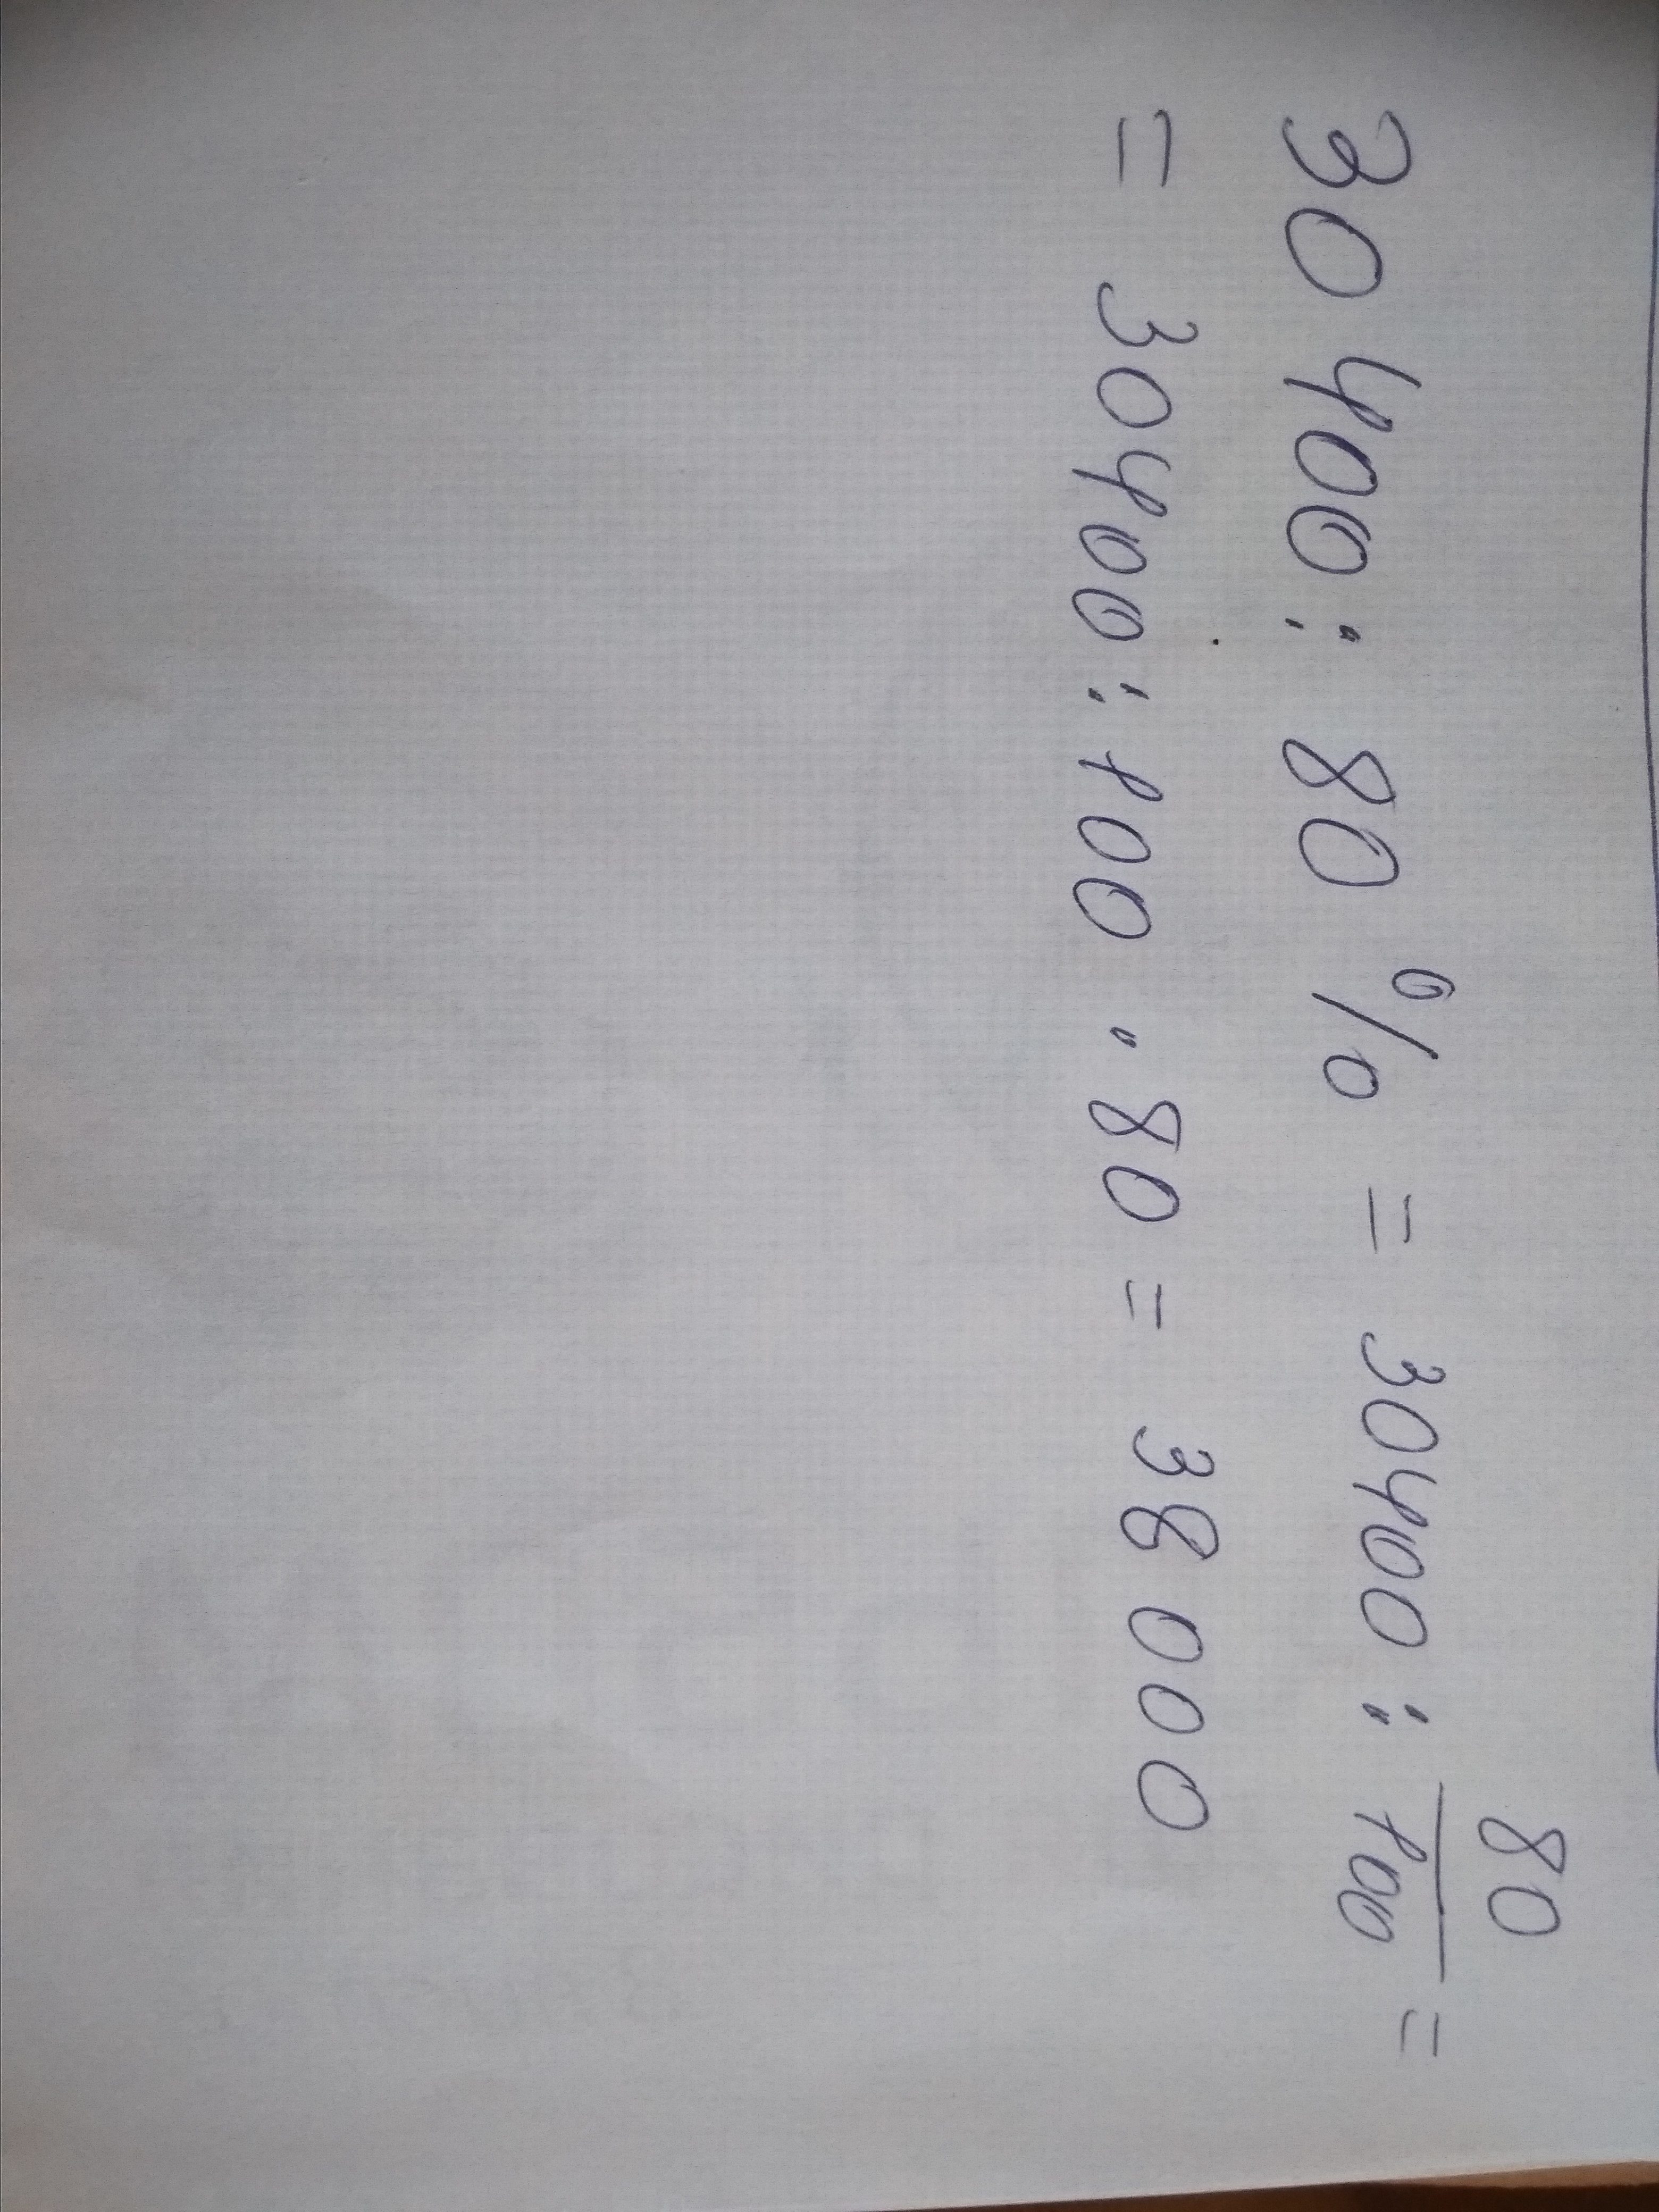 30 400 : 80 % = 30400 : 80/100 =
= 30400 : 100 . 80 = 38 000